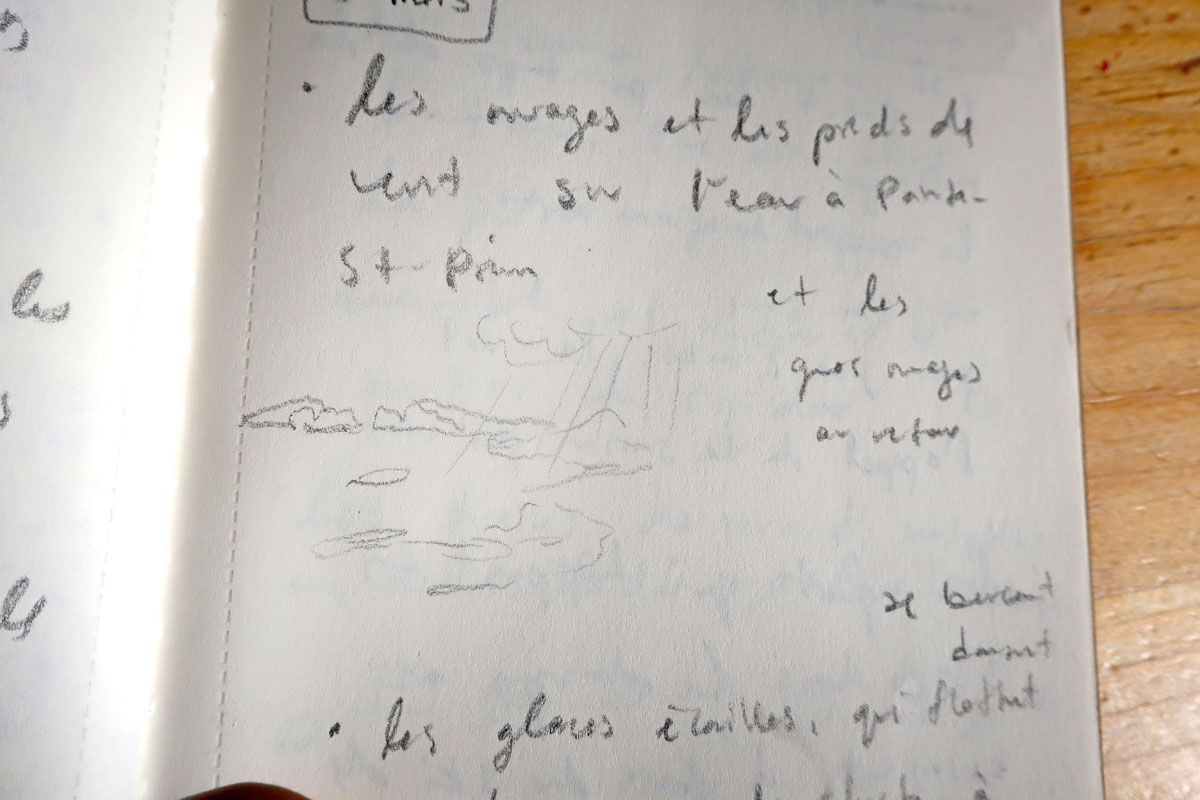 mars
• les nuages et les pieds de
vent sur l'eau à Pointe-
St-
et les
gros nuages
au retour
se berçant
dansent
• les glaces écailles, qui flottent